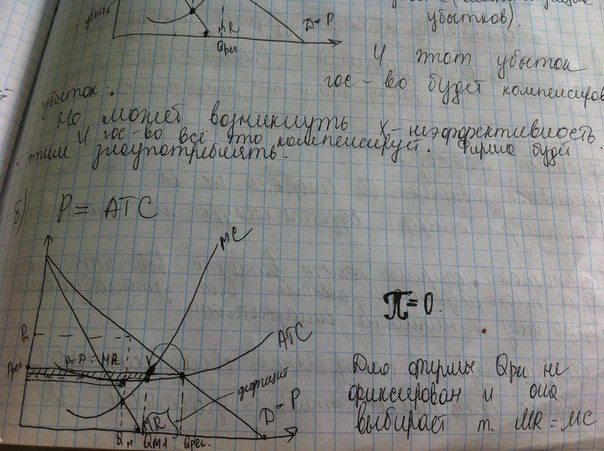 убытков).
убыток
MR
D=P
Qрег
И этот убыток
гос-во будет компенсиров
убыток.
Но может возникнуть X-неэффективность.
И гос-во всё это компенсирует. Фирма будет
этим злоупотреблять.
б) P = ATC
MC
π=0.
Pm
ATC
Pрег
P=P=MR
дефицит
D=P
MR
Qм QM1 Qрег.
Для фирмы Qрег не
фиксирован и она
выбирает т. MR=MC